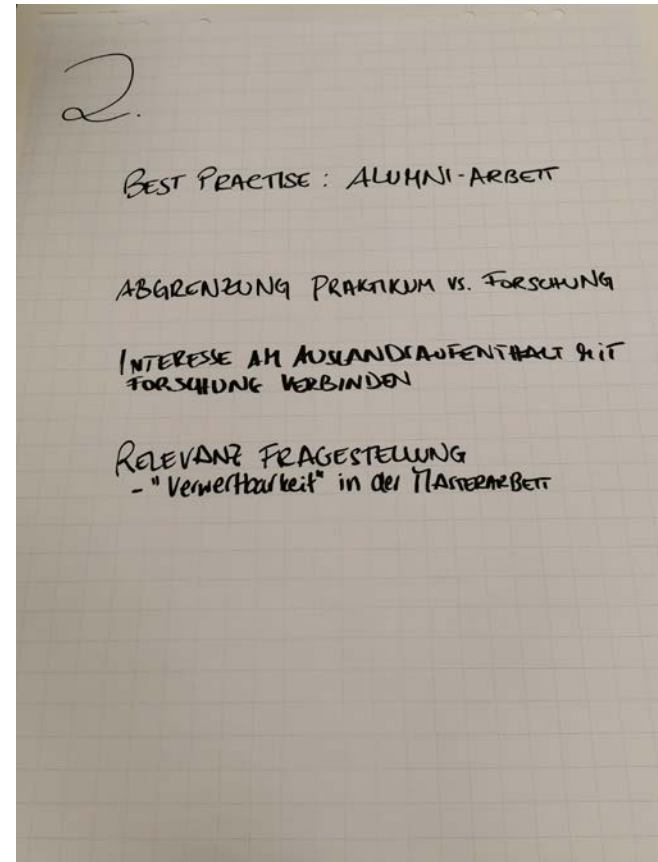 2.
BEST PRACTISE: ALUMNI-ARBEIT
ABGRENZUNG PRAKTIKUM VS. FORSCHUNG
INTERESSE AM AUSLANDSAUFENTHALT MIT
FORSCHUNG VERBINDEN
RELEVANZ FRAGESTELLUNG
- "Verwertbarkeit" in der MASTERARBEIT